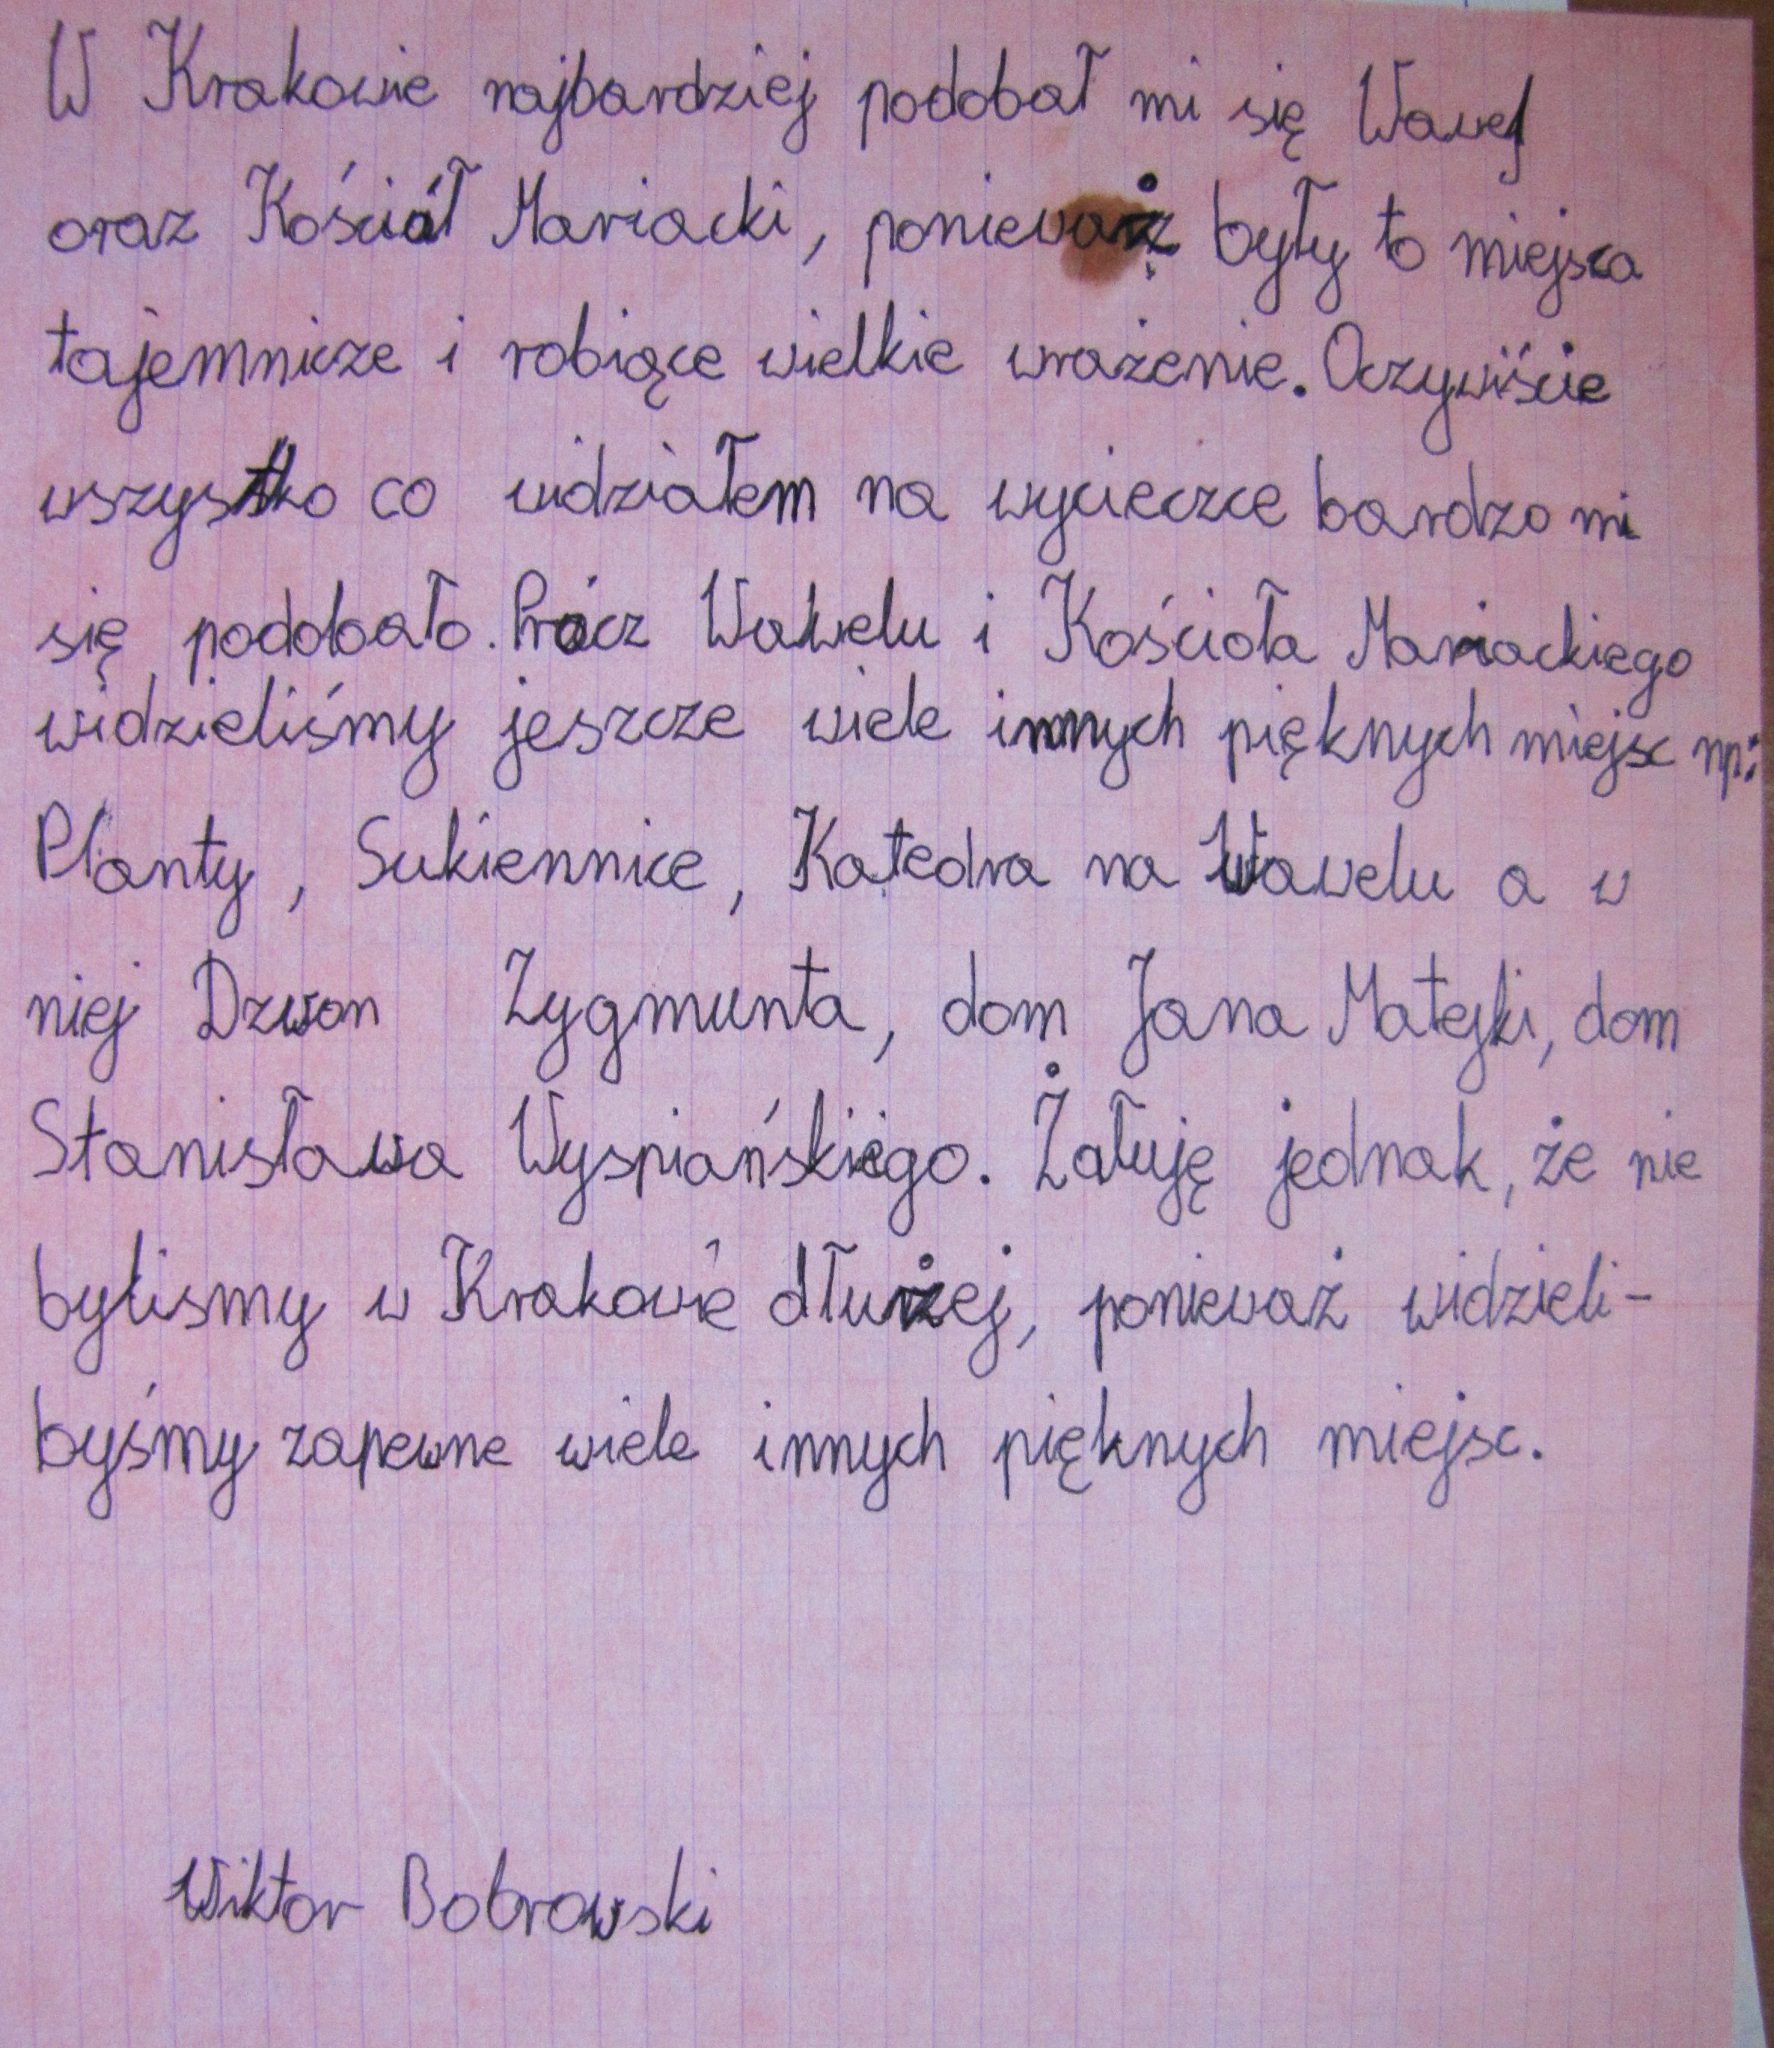 W Krakowie najbardziej podobał mi się Wawel
oraz Kościół Mariacki, ponieważ były to miejsca
tajemnicze i robiące wielkie wrażenie. Oczywiście
wszystko co widziałem na wycieczce bardzo mi
się podobało. Prócz Wawelu i Kościoła Mariackiego
widzieliśmy jeszcze wiele innych pięknych miejsc np:
Planty, Sukiennice, Katedra na Wawelu a w
niej Dzwon Zygmunta, dom Jana Matejki, dom
Stanisława Wyspiańskiego. Żałuję jednak, że nie
byliśmy w Krakowie dłużej, ponieważ widzieli-
byśmy zapewne wiele innych pięknych miejsc.
Wiktor Bobrowski